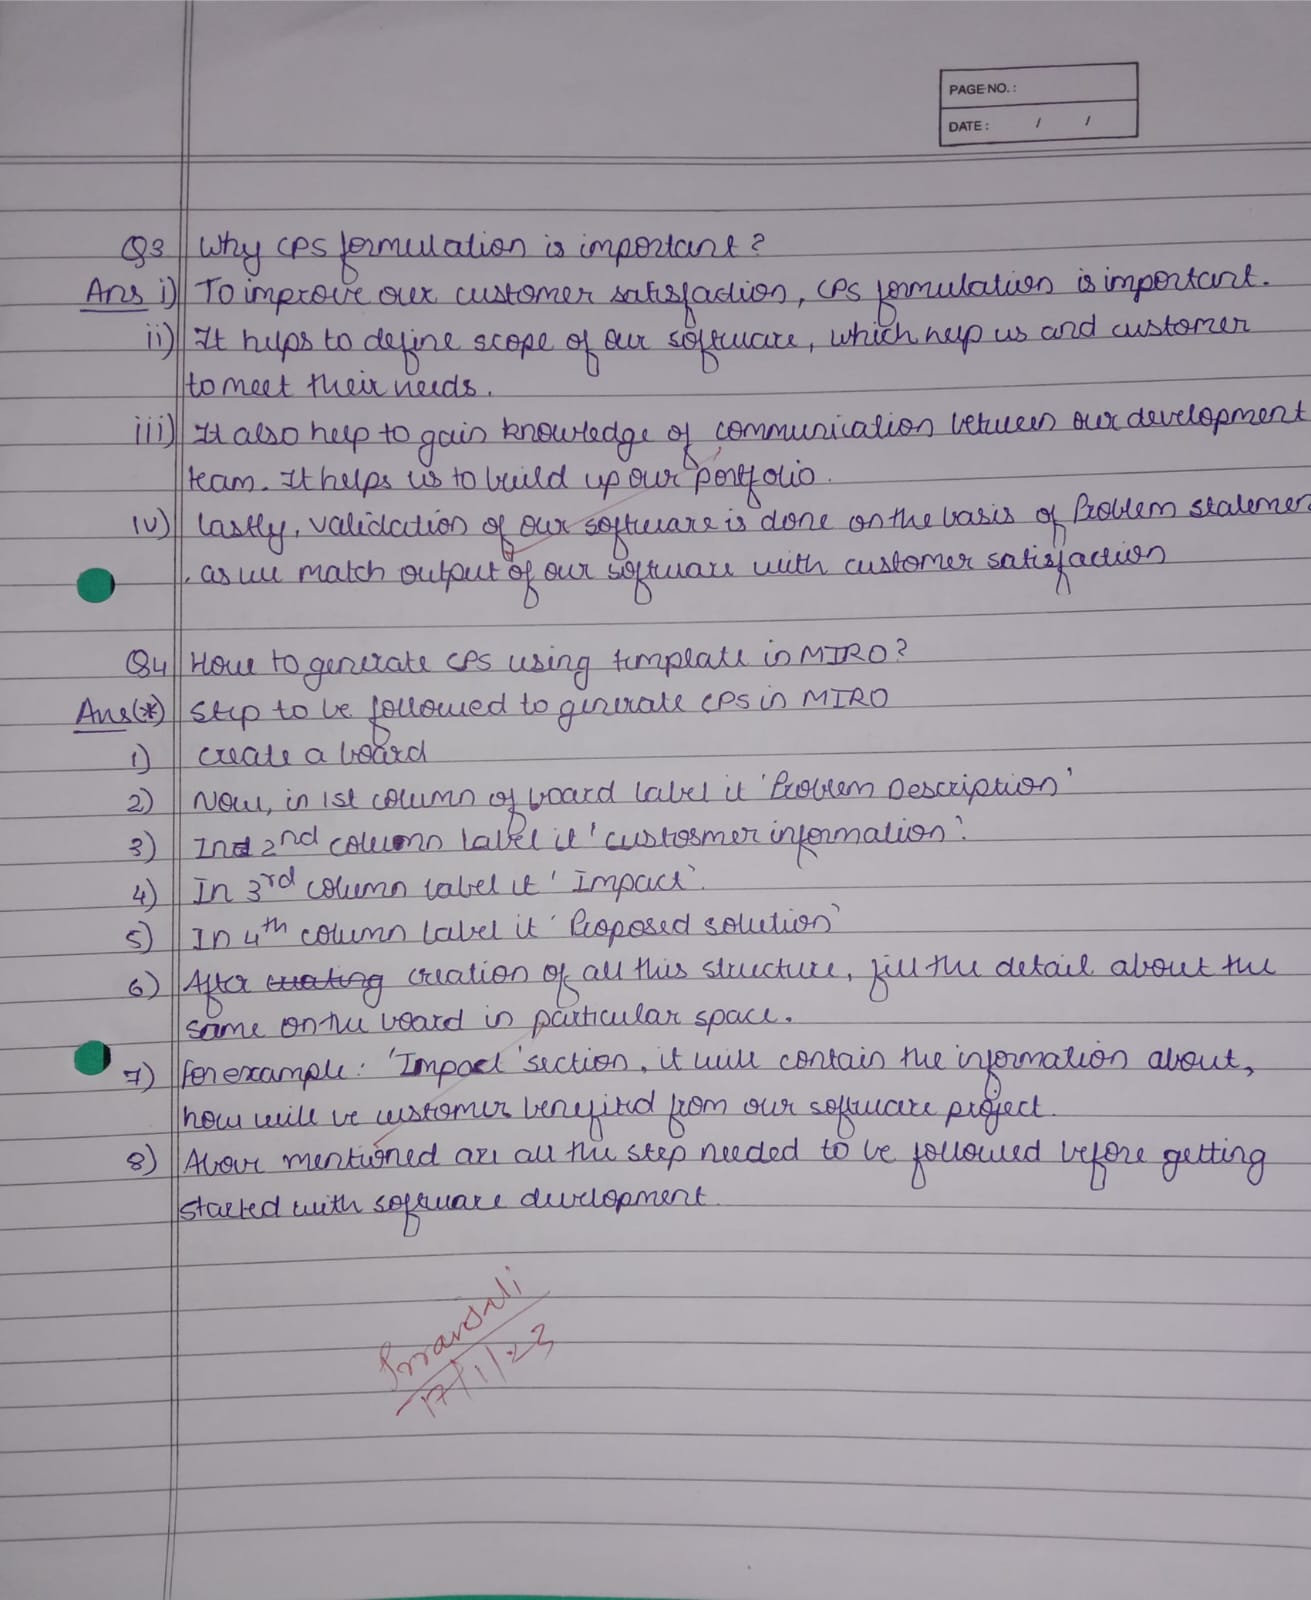 PAGE NO. :
DATE : / /
Q3 Why CPS formulation is important?
Ans i) To improve our customer satisfaction, CPS formulation is important.
ii) It helps to define scope of our software, which help us and customer
to meet their needs.
iii) It also help to gain knowledge of communication between our development
team. It helps us to build up our portfolio.
iv) lastly, validation of our software is done on the basis of Problem statemen
, as we match output of our software with customer satisfaction
Q4 How to generate CPS using template in MIRO?
Ans(*) Step to be followed to generate CPS in MIRO
1) create a board
2) Now, in 1st column of board label it 'Problem Description'
3) In 2nd column label it 'customer information'.
4) In 3rd column label it 'Impact'.
5) In 4th column label it 'Proposed solution'
6) After creating creation of all this structure, fill the detail about the
same on the board in particular space.
7) For example: 'Impact' section, it will contain the information about,
how will be customer benefited from our software project.
8) Above mentioned are all the step needed to be followed before getting
started with software development.
17/1/23